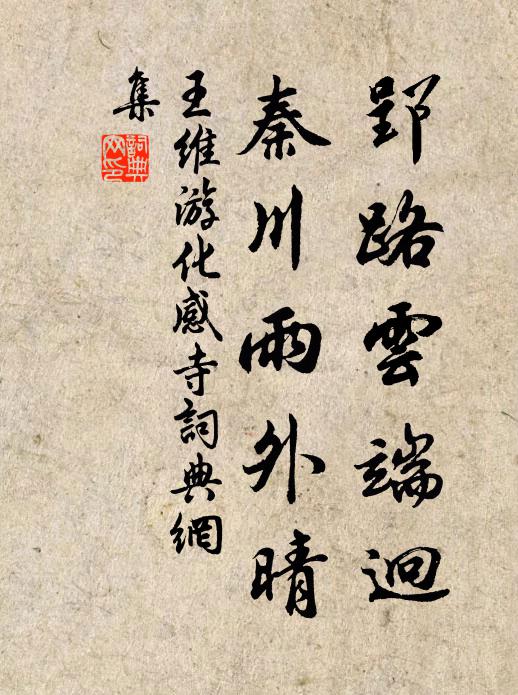 郢路雲端迥
秦川雨外晴
王維游化感寺詞典網
集
詞典
网印